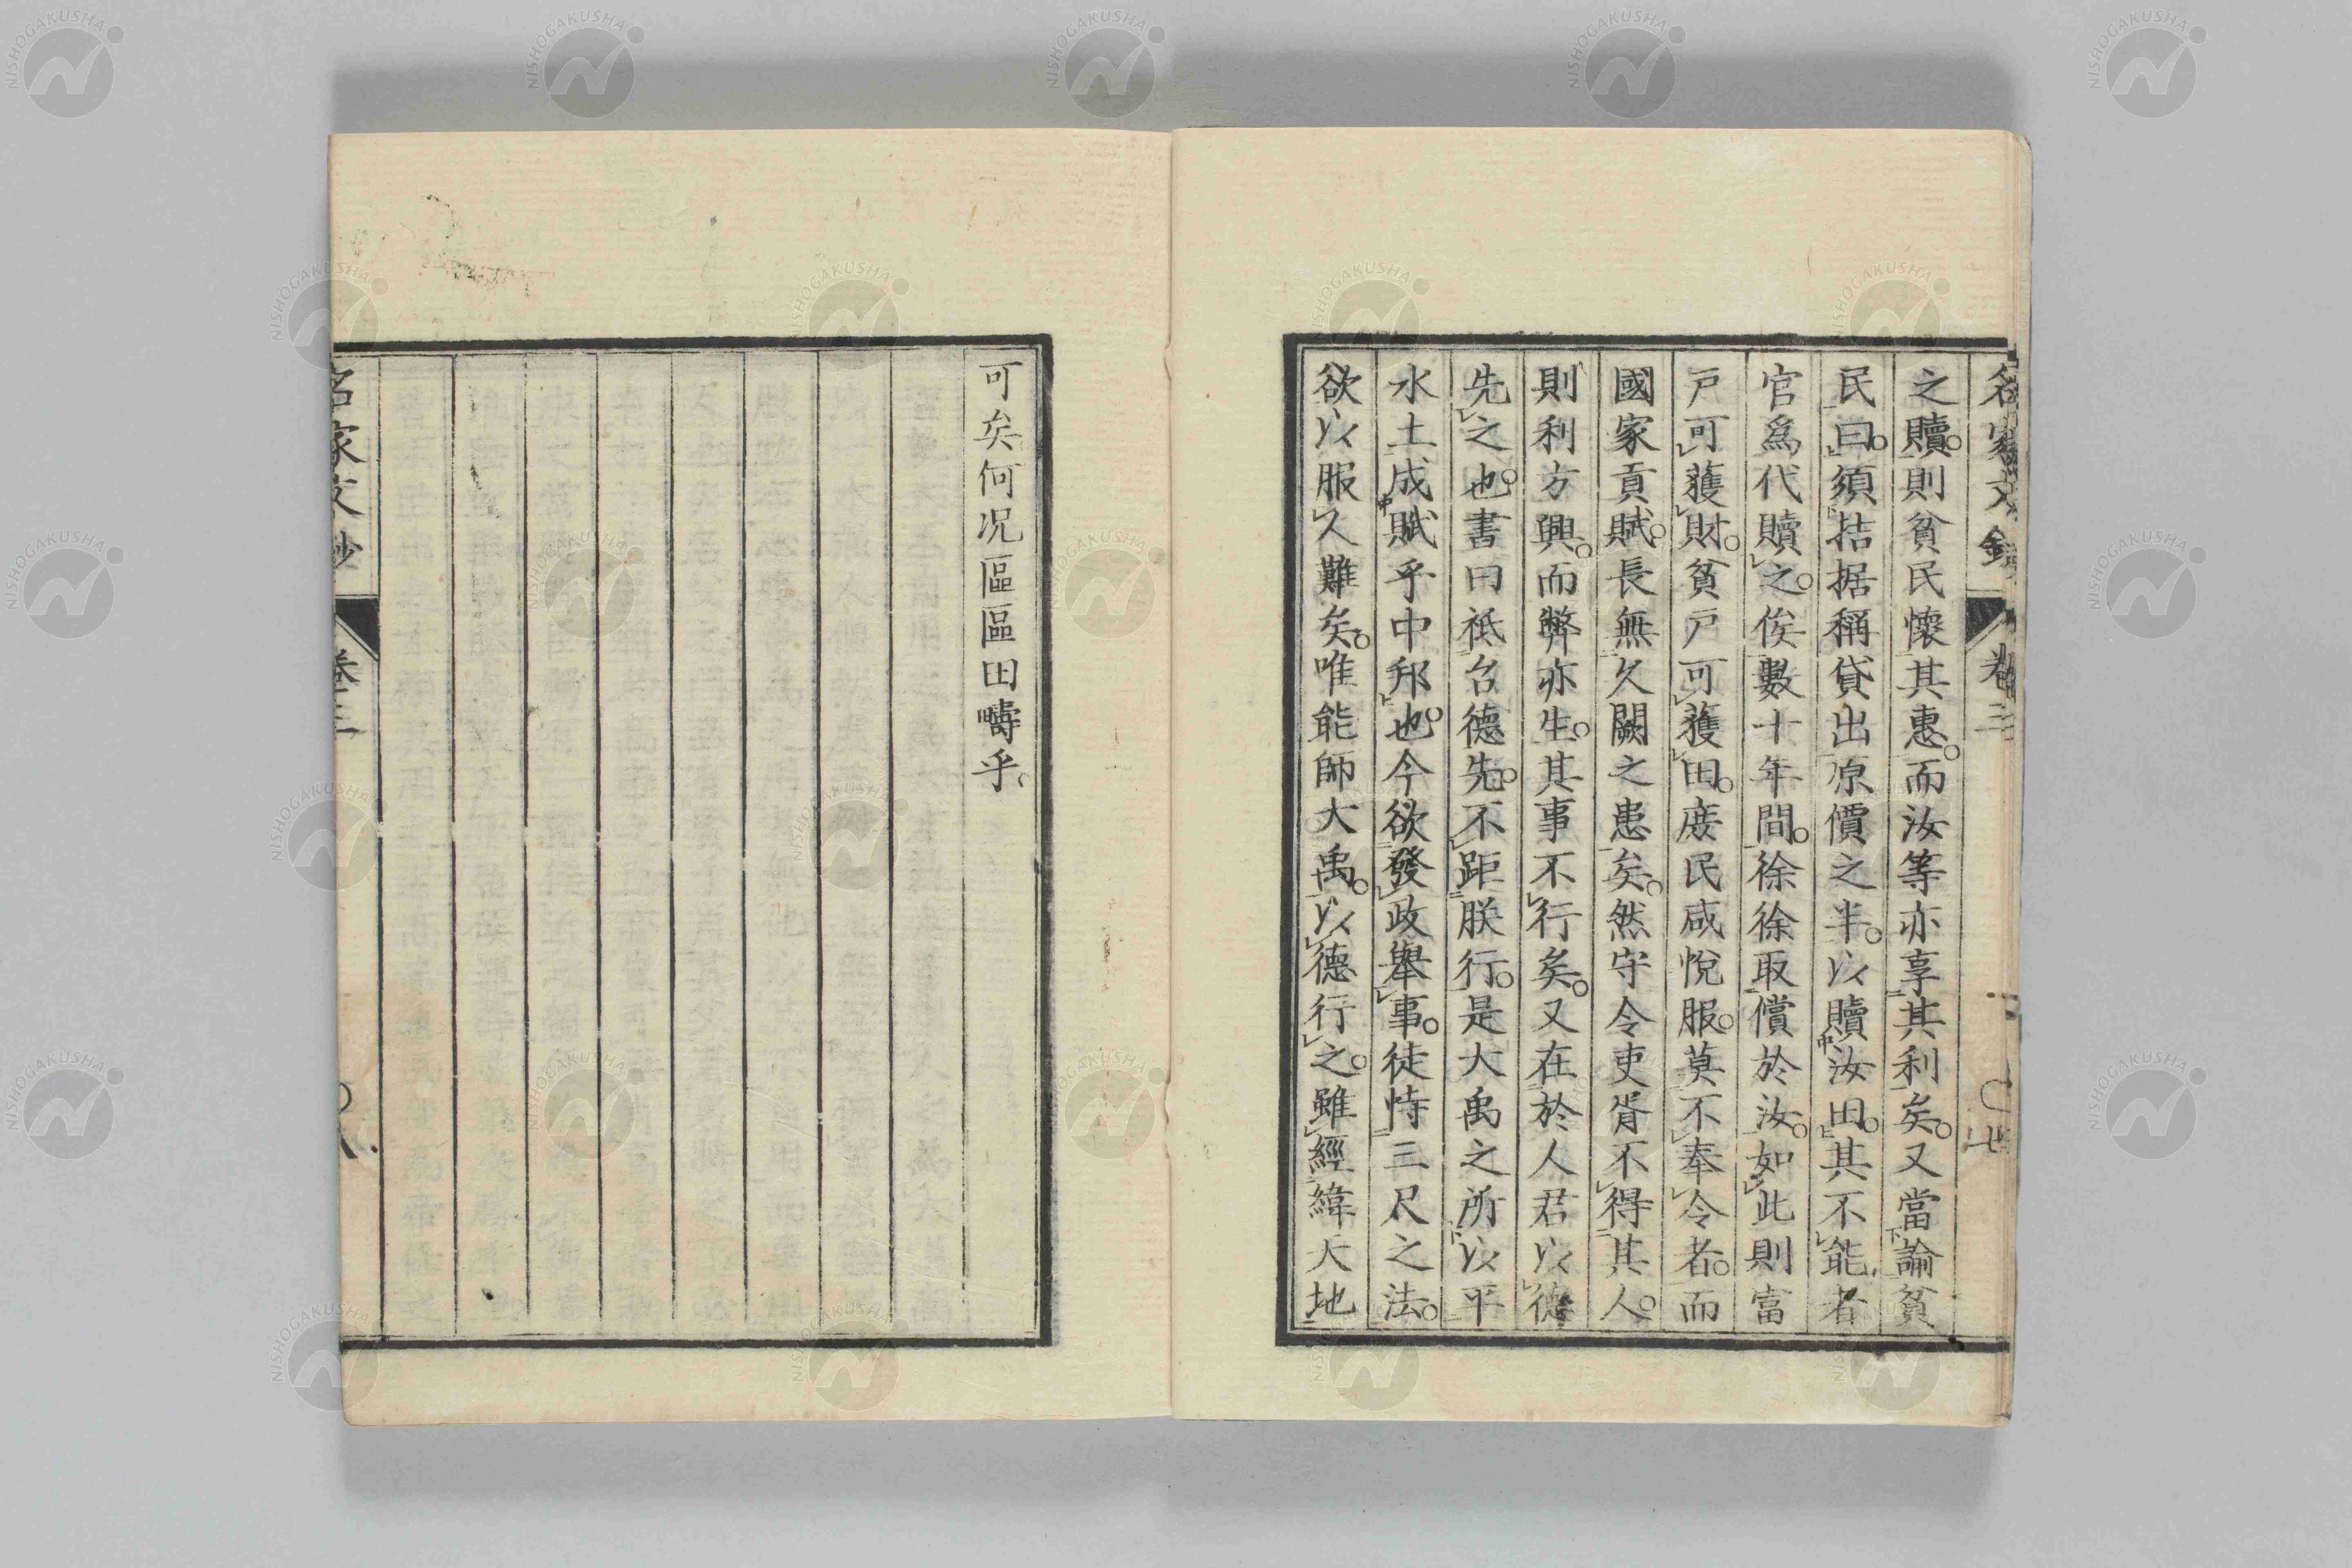 名家文鈔 卷三
之贖。則貧民懷其惠。而汝等亦享其利矣。又當論貧
民曰。須拮据稱貸出原價之半。以贖汝田。其不能者
官爲代贖之。俟數十年間。徐徐取償於汝。如此則富
戶可獲財。貧戶可獲田。庶民咸悅服。莫不奉令者。而
國家貢賦。長無久闕之患矣。然守令吏胥不得其人。
則利方興。而弊亦生。其事不行矣。又在於人君以德
先之也。書曰祗台德先。不距朕行。是大禹之所以平
水土成賦乎中邦也。今欲發政舉事。徒恃三尺之法。
欲以服人難矣。唯能師大禹。以德行之。雖經緯天地
可矣何况區區田疇乎。
名家文鈔 卷三
NISHOGAKUSHA